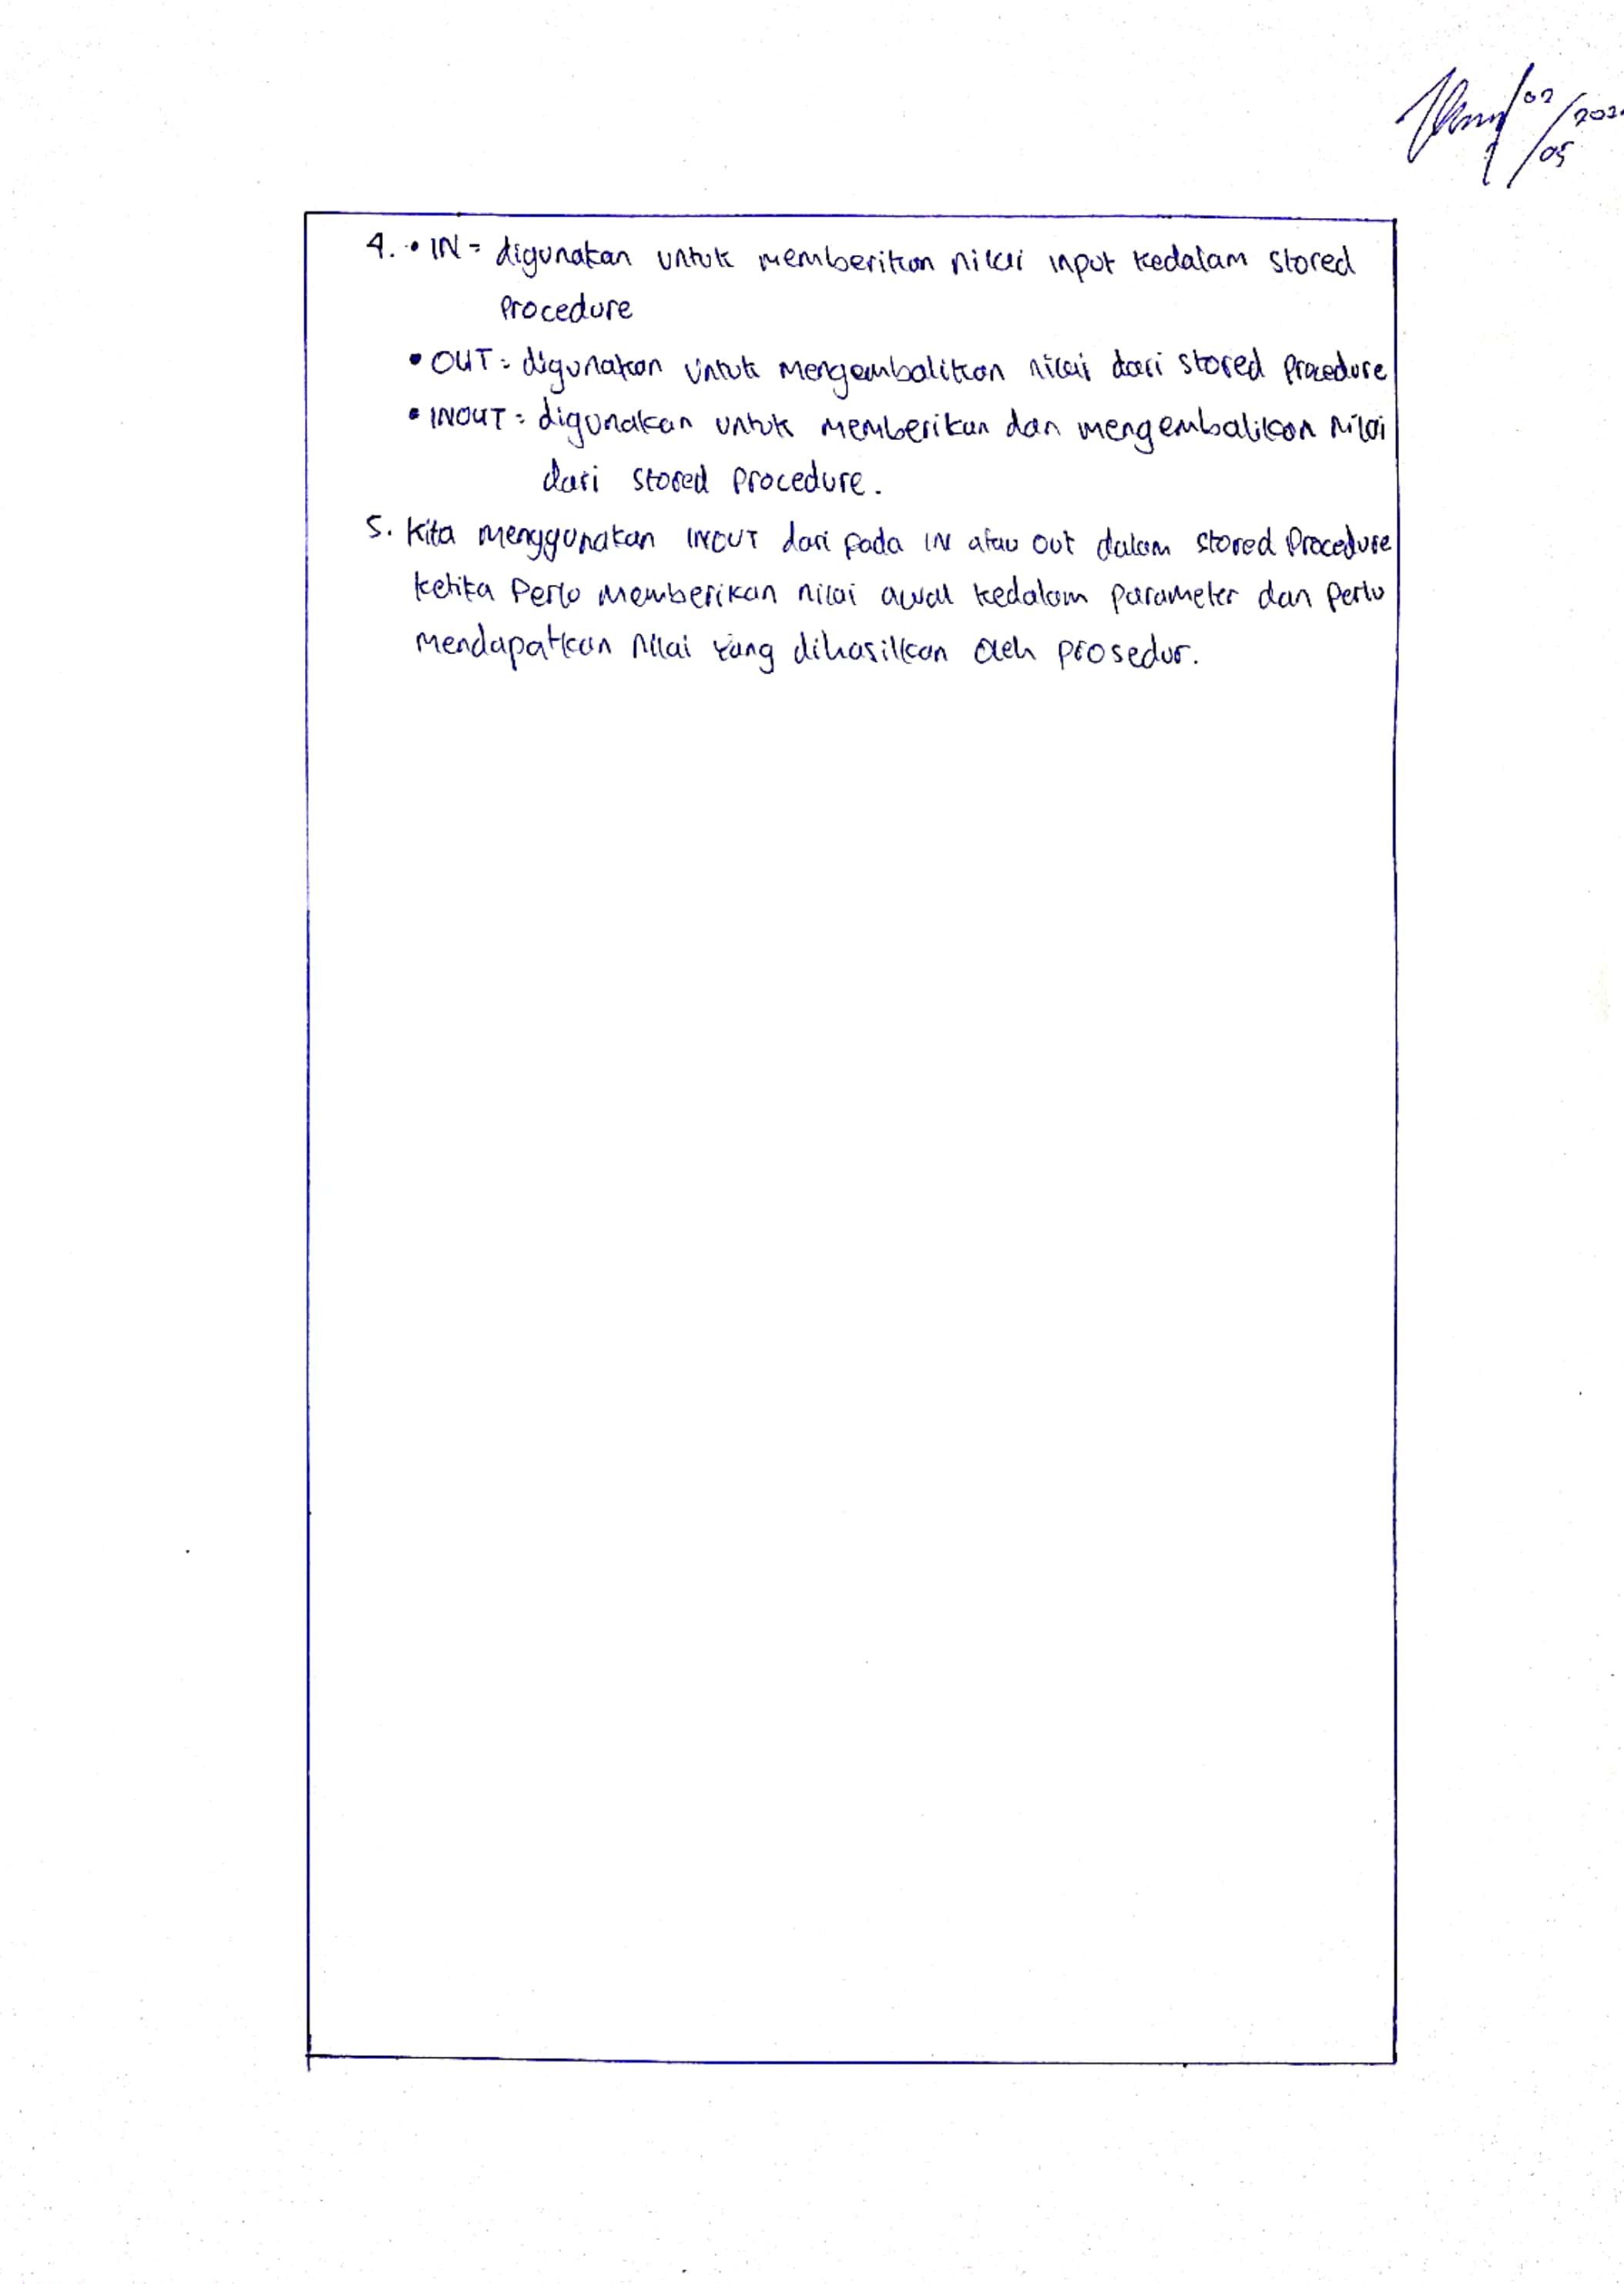 02/05/202
4. • IN = digunakan untuk memberikan nilai input kedalam stored
Procedure
• OUT = digunakan untuk mengembalikan nilai dari stored Procedure
• INOUT = digunakan untuk memberikan dan mengembalikan nilai
dari stored procedure.
5. Kita menggunakan INOUT dari pada IN atau out dalam stored Procedure
ketika Perlu memberikan nilai awal kedalam parameter dan Perlu
mendapatkan nilai yang dihasilkan oleh prosedur.